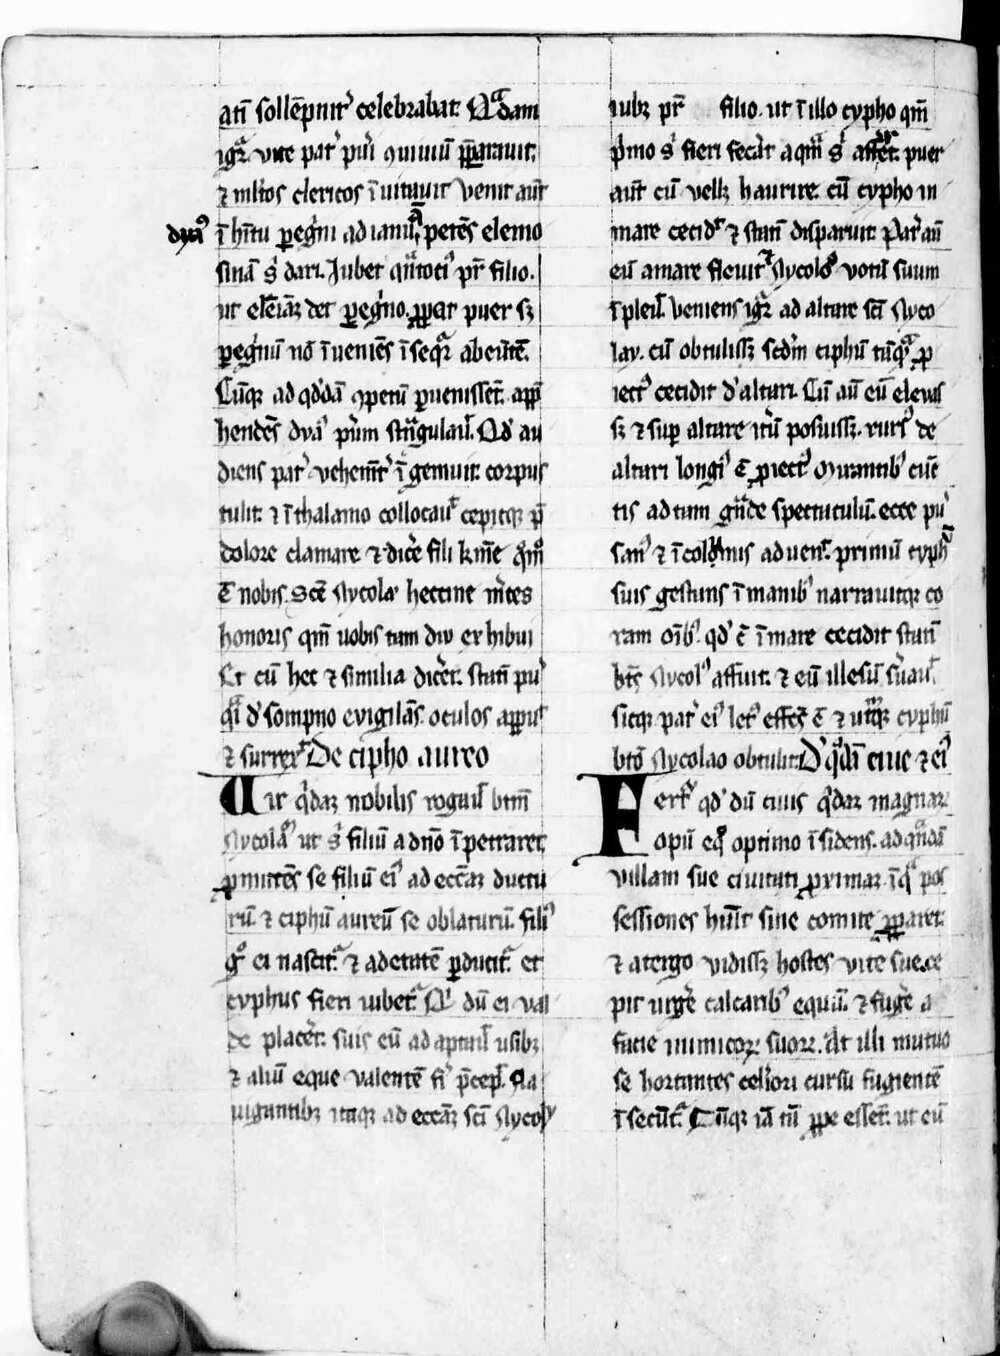 ati sollēpnit᷑ celebrabat. Quadam
igr̄ vice pat᷑ pu᷑i ꝯuiuiū p̄parauit.
⁊ ml᷑tos clericos īuitauit Venit aūt
dyab᷒ ī hītu peg᷑ni ad ianuā, petēs elemo
sinā s᷑ dari. Jubet q̄ntoci᷒ pr̄ filio.
ut elēiaꝫ det peg᷑no. ꝓpat puer sꝫ
peg᷑nū nō īueniēs īseqr̄ abeūtē.
Cūqꝫ ad qd᷑dā ꝯpetū ꝑuenissꝫ. app̄
hendēs dya᷒ pu᷑um st᷑ngulaū. Qd᷑ au
diens pat᷑ vehemt᷑ īgemuit. corpus
tulit. ⁊ ī thalamo collocau᷑ cepitqꝫ p̄
dolore clamare ⁊ dice᷑ fili kme q̊mo
ē nobis. Scē Nycolae heccine m᷑ces
honoris qm̄ uobis tam diu exhibui
Et cū hec ⁊ similia dice᷑t. statī pu᷑
q̄i d᷑ sompno euigilās. oculos apu᷑t
⁊ surrex᷑ De cipho aureo
Uir qd᷑aꝫ nobilis rogau᷑ btm̄
Nycolāū ut s᷑ filiū a dn̄o īpetraret
ꝓmittēs se filiū ei᷒ ad ecc̄aꝫ ductu
rū. ⁊ ciphū aureū se oblaturū. fili᷒
g̊ ei nascit᷑. ⁊ ad etatē ꝑducit᷑. et
cyphus fieri iubet᷑ Q᷑ dū ei val
de place᷑t. suis eū ad aptauit usibꝫ
⁊ aliū eque valentē fi᷑ p̄cep᷑. Na
uigantibꝫ itaqꝫ ad ecc̄aꝫ sc̄i Nycoly
iubꝫ pr̄ filio. ut ī illo cypho qm̄
p᷑mo s᷑ fieri fece᷑t aqm̄ s᷑ affer᷑et. puer
aūt cū vellꝫ haurire. cū cypho in
mare cecid᷑ ⁊ statī disparuit. Pat᷑ aū
eū amare fleuit Nycolao votū suum
ī pleuit. veniens igr̄ ad altare sc̄i Nyco
lay. cū obtulissꝫ scd᷑m ciphū tāqꝫ ꝓ
iect᷒ cecidit d᷑ altari. Cū aū eū eleuas
sꝫ ⁊ sup altare it᷑ū posuissꝫ. rurs᷒ de
altari longi᷒ ē ꝓiect᷒ Mirantib᷒ cūc
tis ad tam gn̄de spectaculū. ecce pu᷑
san᷒ ⁊ īcolomis aduen᷑. primū cyphū
suis gestans ī manib᷒ narrauitqꝫ co
ram oīb᷒. qd᷑ ē ī mare cecidit statī
bt̄s Nycol᷒ affuit. ⁊ eū illesū s᷑uau᷑
sicqꝫ pat᷑ ei᷒ let᷒ effēs ē ⁊ utrūqꝫ cyphū
bto᷑ Nycolao obtulit. D᷑ qd᷑ā ciue ⁊ ei᷒
Fert᷑ qd᷑ dū ciuis qd᷑aꝫ magnaꝝ
opū eq̊ optimo īsidens. ad qn̄dā
villam sue ciuitati ꝓximaꝫ ī q̄ pos
sessiones hu᷑it sine comite ꝓpar᷑et.
⁊ a tergo vidissꝫ hostes vite sue. ce
pit urge᷑ calcarib᷒ equū. ⁊ fuge᷑ a
facie inimicoꝝ suoꝝ. At illi mutuo
se hortantes cel᷑iori cursu fugientē
ī secūt᷑. Cūqꝫ iā tū ꝓpe essꝫt. ut eū